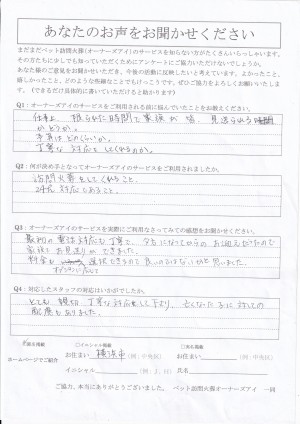 あなたのお声をお聞かせください
まだまだペット訪問火葬(オーナーズアイ)のサービスを知らない方がたくさんいらっしゃいます。
その方たちに少しでも知っていただくためにアンケートにご協力いただけないでしょうか。
あなた様のご意見をお聞かせいただき、今後の活動に反映したいと考えています。よかったこと、
嬉しかったこと、どのような些細なことでもけっこうです。ぜひご協力をよろしくお願いいたします。
(できるだけ具体的に書いていただけると助かります)
Q1：オーナーズアイのサービスをご利用される前に悩んでいたことをお教えください。
仕事上、限られた時間で家族が
かどうか。
丁寧な対応をしてくれるのか。
Q2：何が決め手となってオーナーズアイのサービスをご利用されましたか。
訪問火葬をしてくれること。
24h対応であること。
Q3：オーナーズアイのサービスを実際にご利用なさってみての感想をお聞かせください。
最初の電話対応も丁寧で、夕方になってからのお迎えだったので
家族でお見送りができました。
料金も 選択できるので良いのではないかと思いました。
オプションに応じて
Q4：対応したスタッフの対応はいかがでしたか。
とても親切、丁寧な対応をして下さり、亡くなった子に対しての
配慮もありました。
匿名掲載
イニシャル掲載
実名掲載
ホームページでご紹介
お住まい 横浜市 (例：中央区)
お住まい (例：中央区)
イニシャル
氏名
ご協力、本当にありがとうございました。 ペット訪問火葬オーナーズアイ 一同